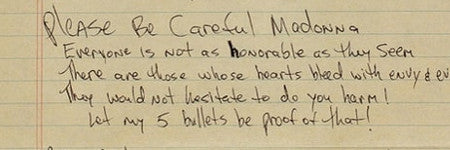 Please Be Careful Madonna
Everyone is not as honorable as they seem
There are those whose hearts bleed with envy & ev
They would not hesitate to do you harm!
Let my 5 bullets be proof of that!